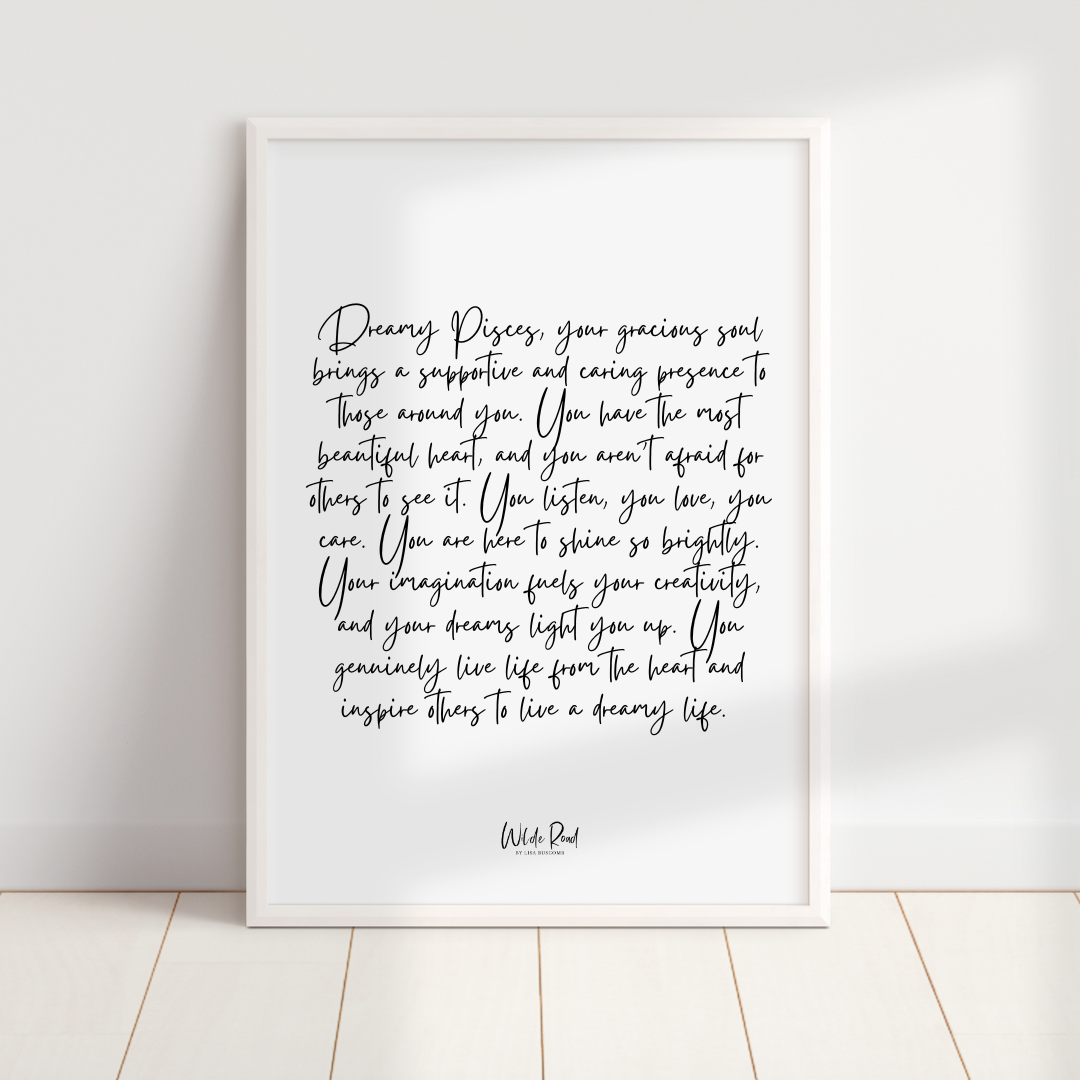 Dreamy Pisces, your gracious soul
brings a supportive and caring presence to
those around you. You have the most
beautiful heart, and you aren't afraid for
others to see it. You listen, you love, you
care. You are here to shine so brightly.
Your imagination fuels your creativity,
and your dreams light you up. You
genuinely live life from the heart and
inspire others to live a dreamy life.
Wilde Road
BY LISA BUSCOMB